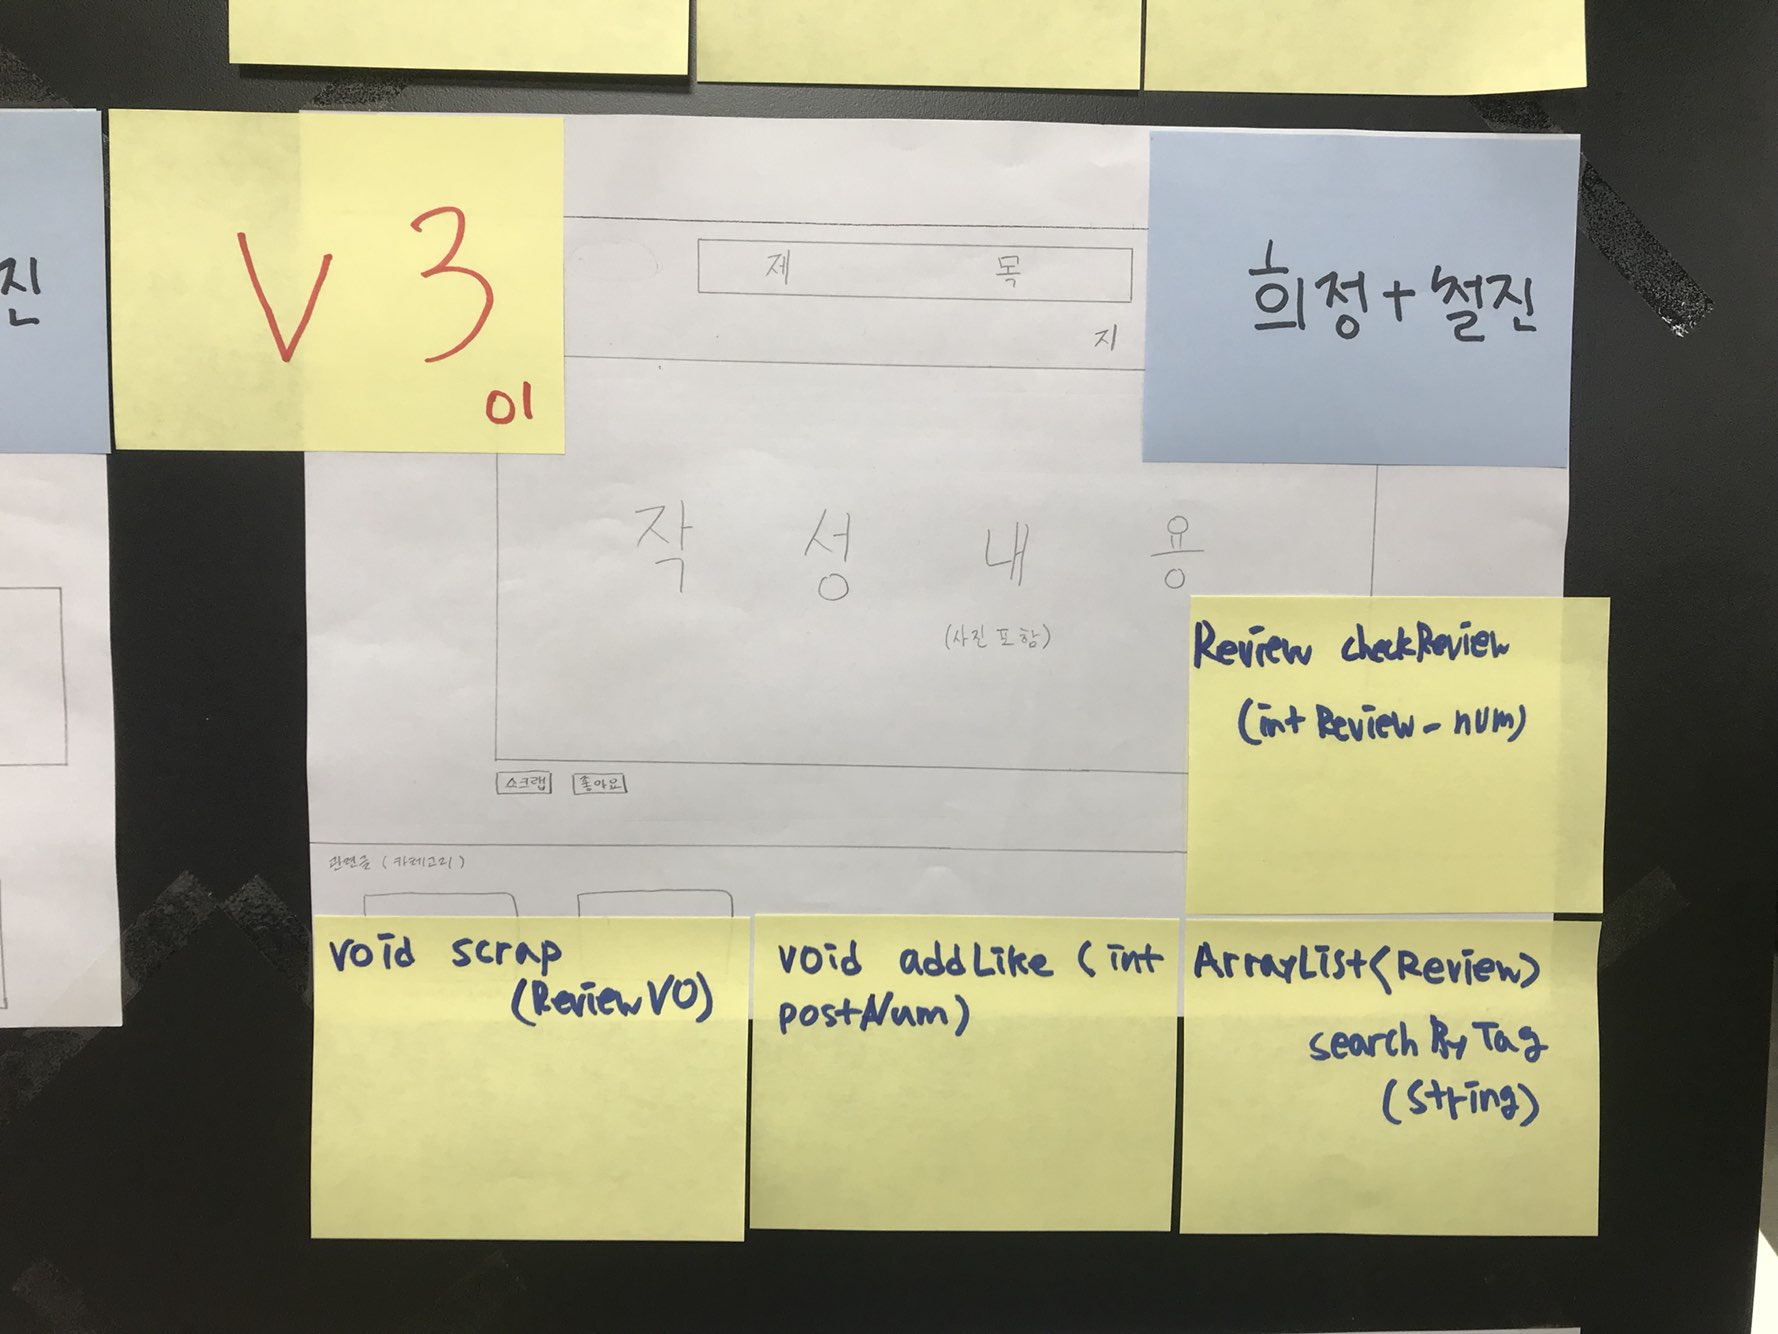 진
V 3
01
제 목
지
희정+철진
작 성 내 용
(사진 포함)
Review checkReview
(int Review_num)
스크랩 좋아요
관련글 (카테고리)
void scrap
(ReviewVO)
void addLike (int
postNum)
ArrayList<Review>
searchByTag
(String)